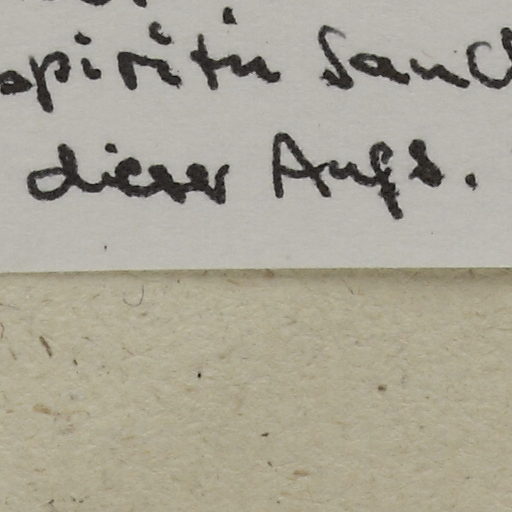 spiritu Sanc
dieser Aufs.